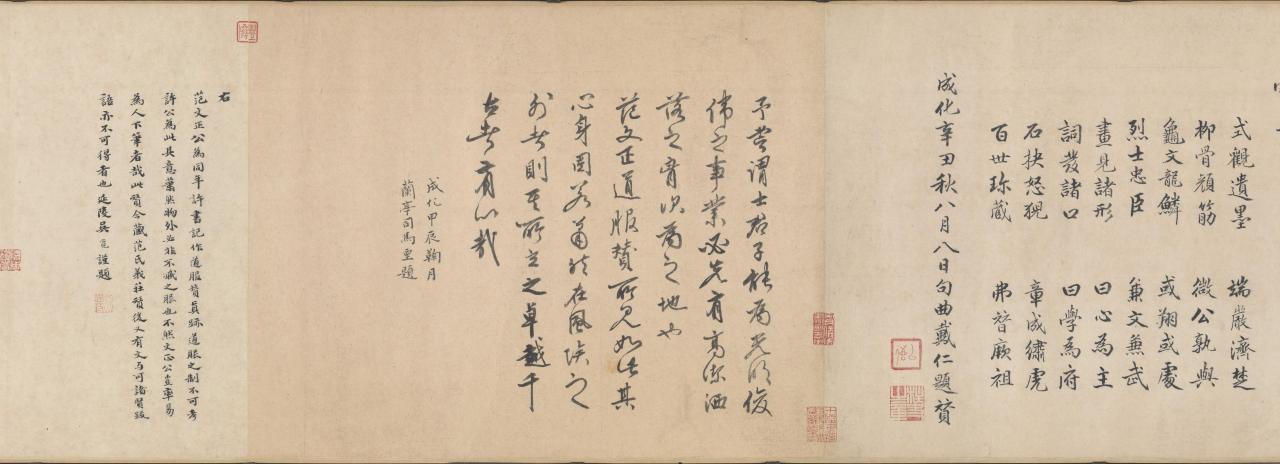 式觀遺墨 端嚴濟楚
柳骨顏筋 微公孰與
龜文龍鱗 或翔或處
烈士忠臣 兼文兼武
畫見諸形 曰心為主
詞發諸口 曰學為府
石抉怒猊 章成繡虎
百世珎藏 弗替厥祖
成化辛丑秋八月八日句曲戴仁題贊
予嘗謂士君子能為光明俊
偉之事業必先有高潔洒
落之胷次為之地也
范文正道服贊所見如此其
心身固若蕭然在風埃之
外者則其所立之卓越千
古者有以哉
成化甲辰鞠月
蘭亭司馬垔題
右
范文正公為同年許書記作道服贊真跡道服之制不可考
許公為此其意蕭然物外必非不衷之服也不然文正公豈輕易
為人下筆者哉此贊今藏范氏義莊贊後又有文与可諸賢跋
語亦不可得者也延陵吳寬謹題